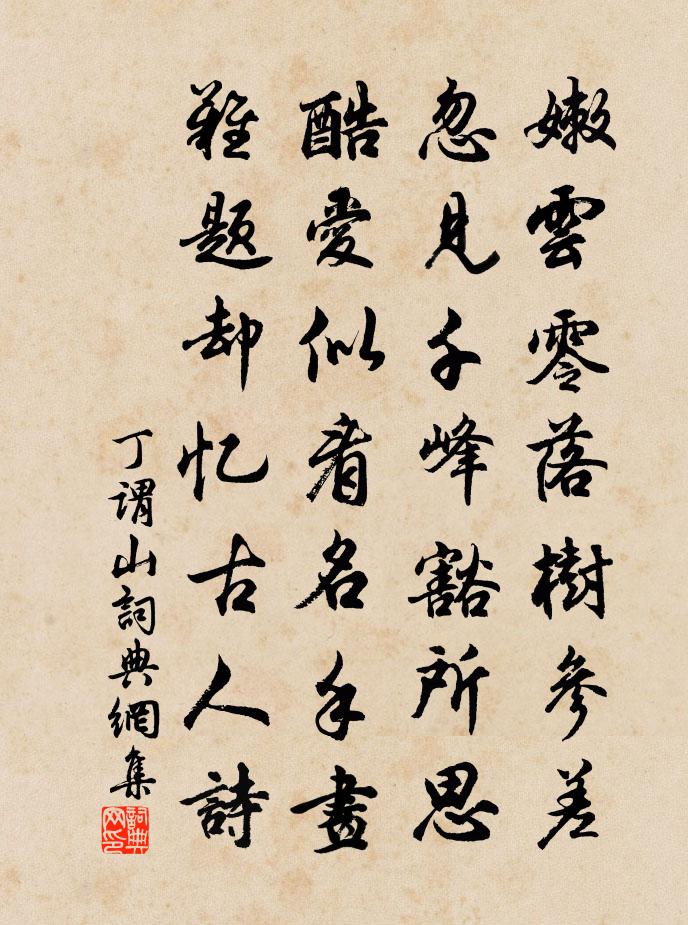 嫩雲零落樹參差
忽見千峰豁所思
酷愛似看名手畫
難題却忆古人詩
丁謂山詞典網集
詞典网印